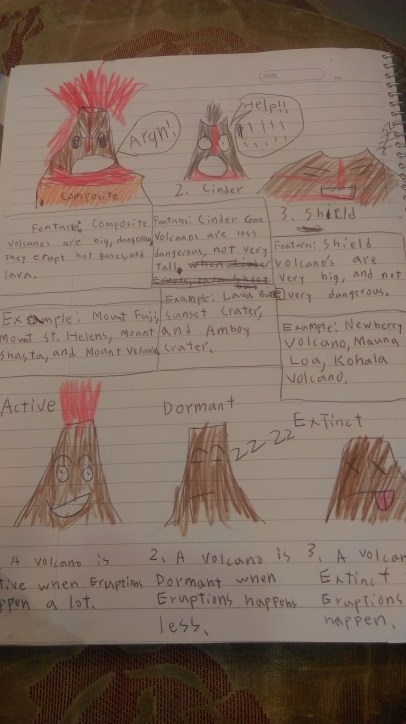 Argh!
Help!!
! ! ! ! !
Composite
2. Cinder
3. Shield
Features: Composite
volcanos are big, dangerous,
They erupt hot gases, and
lava.
Features: Cinder Cone
Volcanos are less
dangerous, not very
Tall.
Features: Shield
volcano's are
very big, and not
very dangerous.
Example: Mount Fuji,
Mount St. Helens, Mount
Shasta, and Mount
Example: Lava Butte,
Sunset Crater,
and Amboy
Crater.
Example: Newberry
Volcano, Mauna
Loa, Kohala
Volcano.
Active
Dormant
Extinct
ZZ ZZ
A volcano is
tive when Eruptions
ppen a lot.
2. A volcano is
Dormant when
Eruptions happens
less.
3. A volcan
Extinct
Eruptions
happen.